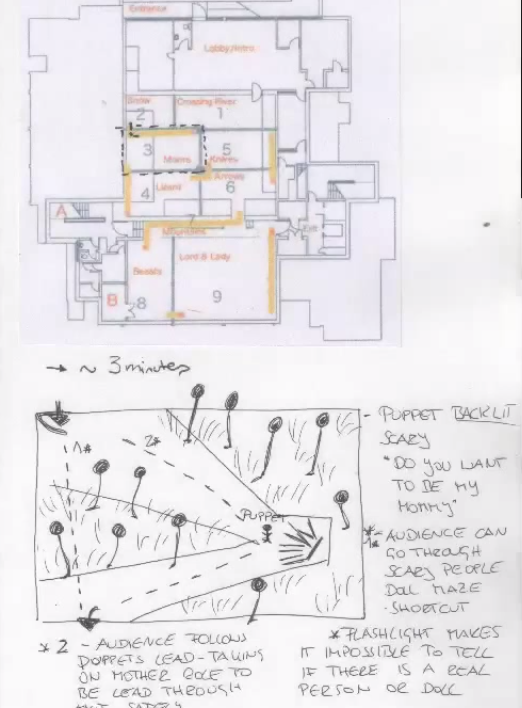 Entrance
Lobby/Intro
Snow
Crossing River
2
1
3
5
Mines
Knives
Arrows
4
Lizard
6
A
7
Mountains
Exit
Lord & Lady
Beasts
B
8
9
→ ~ 3 minutes
- PUPPET BACKLIT
SCARY
"DO YOU WANT
TO BE MY
MOMMY"
1*
2*
PUPPET
*- AUDIENCE CAN
1*
GO THROUGH
SCARY PEOPLE
DOLL MAZE
- SHORTCUT
* 2 - AUDIENCE FOLLOWS
PUPPETS LEAD - TAKING
ON MOTHER ROLE TO
BE LEAD THROUGH
* FLASHLIGHT MAKES
IT IMPOSSIBLE TO TELL
IF THERE IS A REAL
PERSON OR DOLL